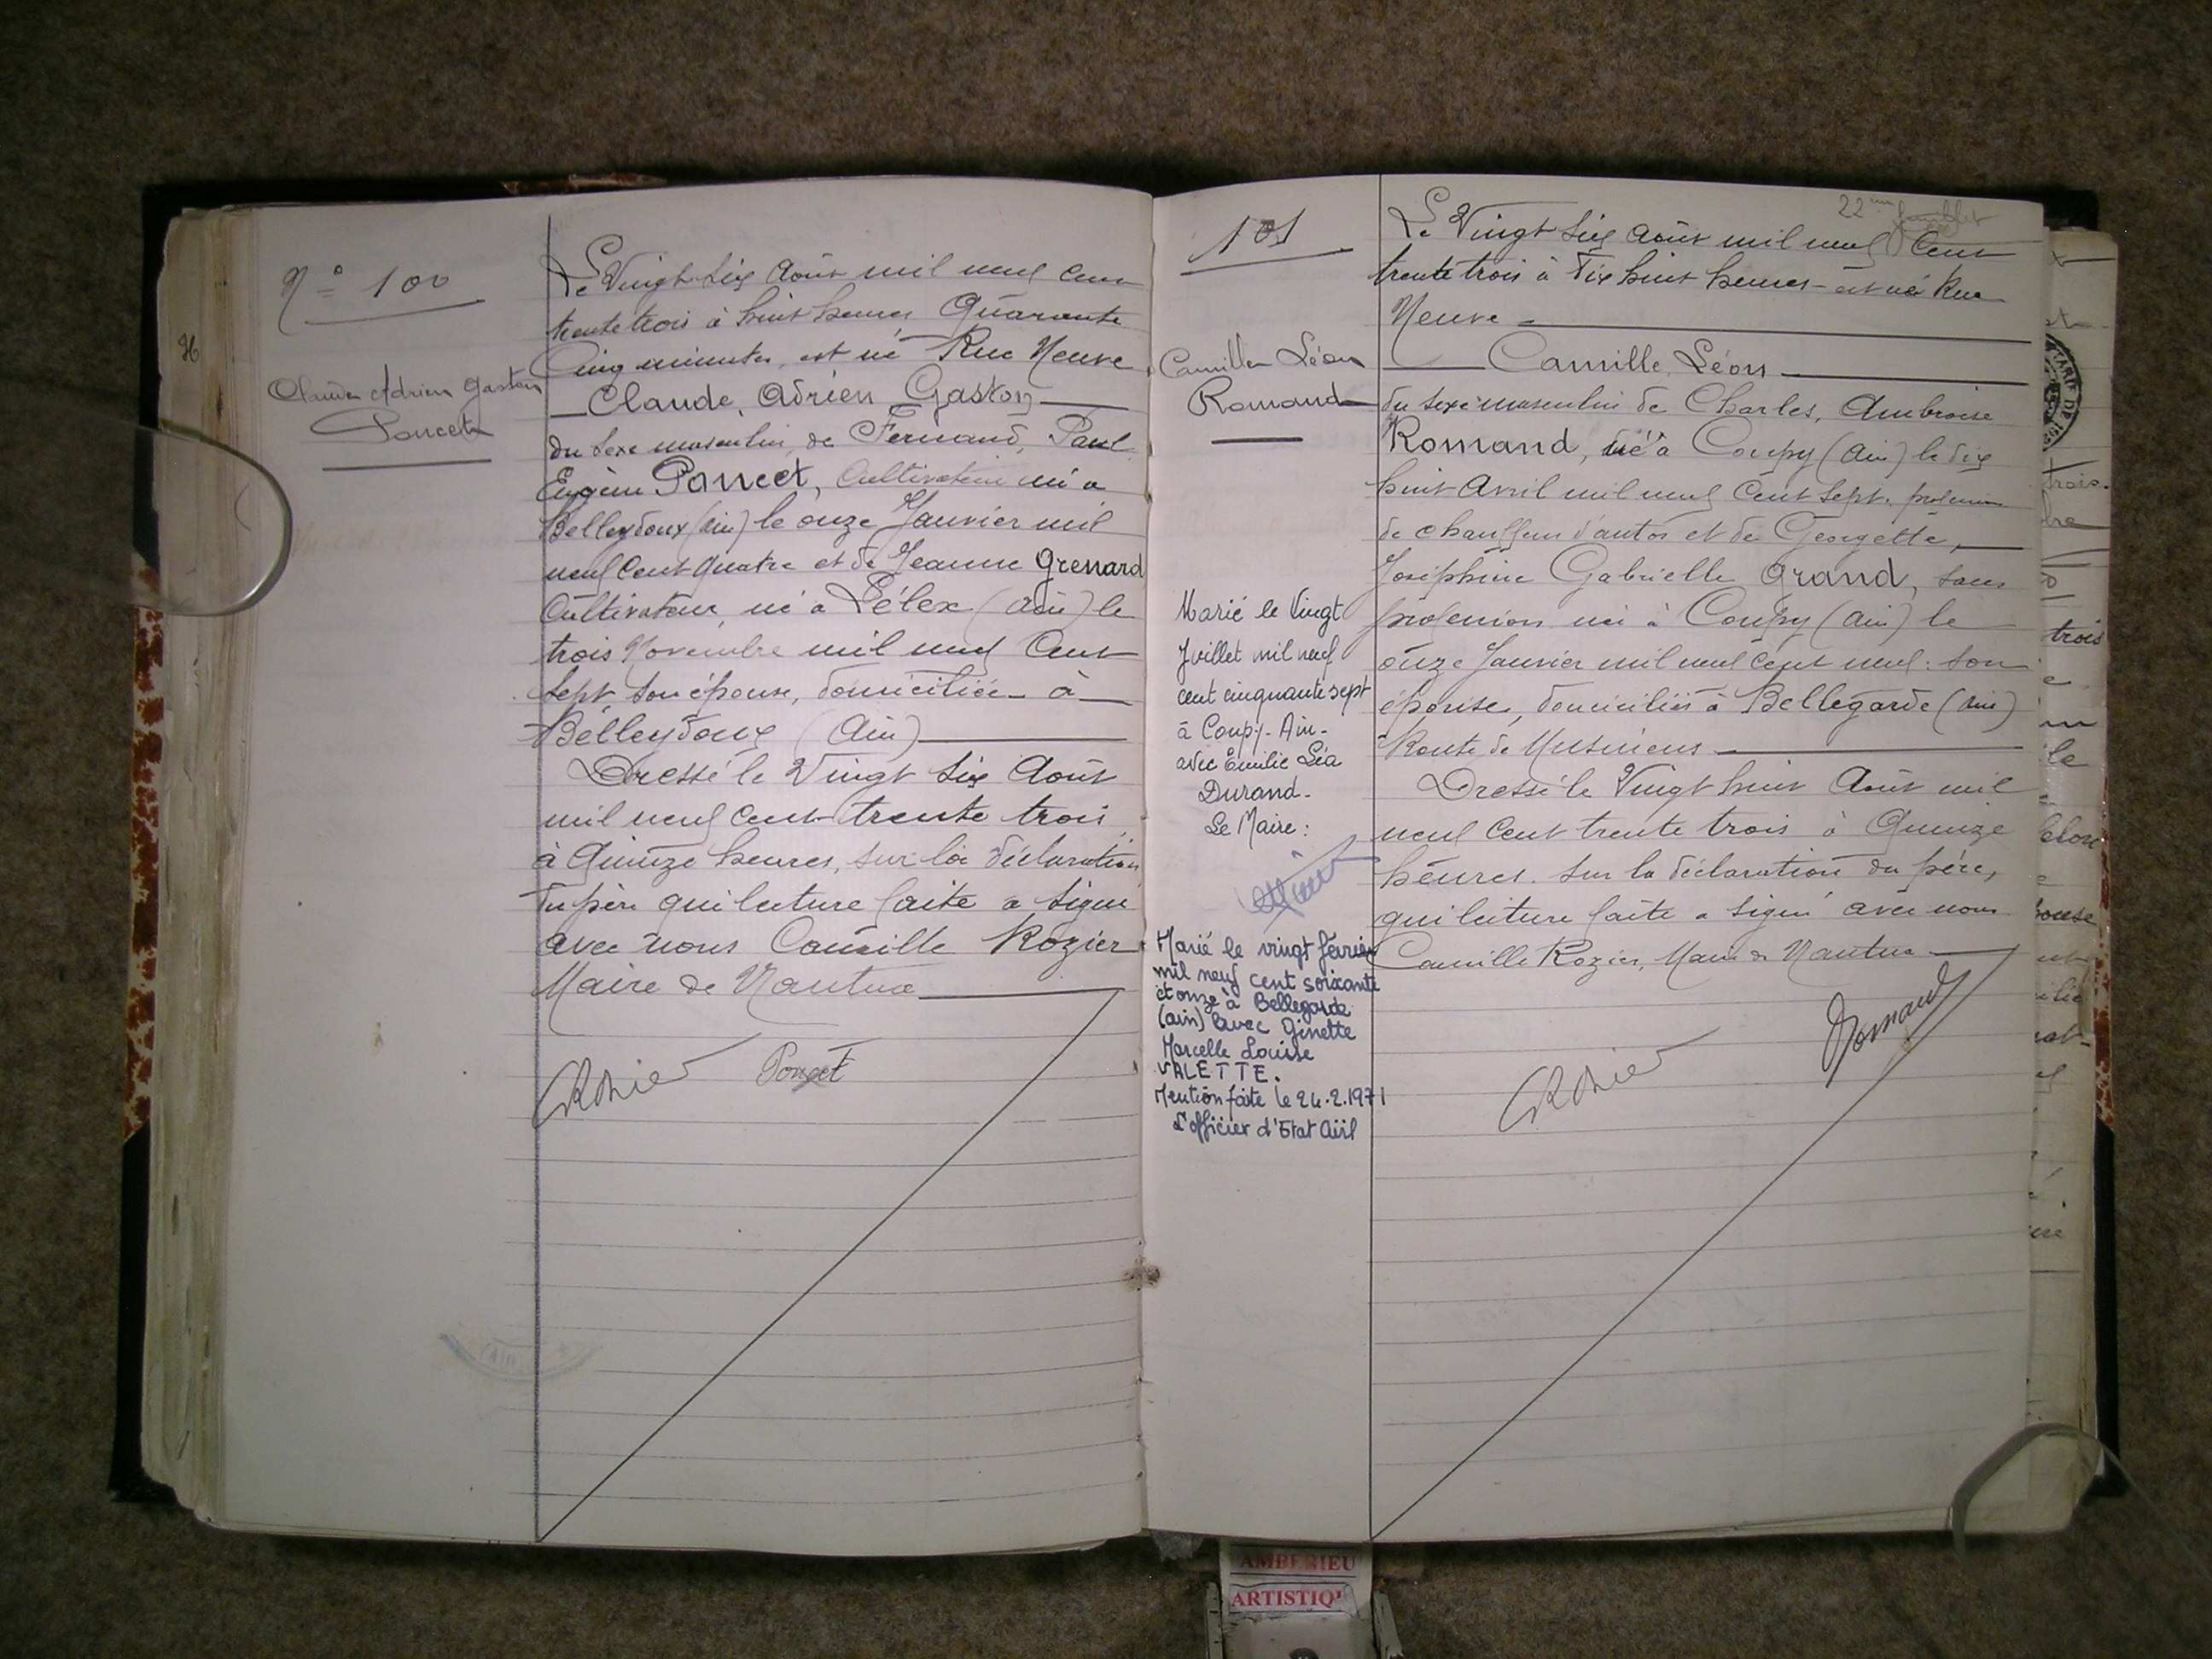 N° 100
Claude Adrien Gaston
Poncet
Le Vingt Six Août mil neuf cent
trente trois à huit heures Quarante
Cinq minutes, est né Rue Neuve
Claude, Adrien Gaston
du sexe masculin, de Fernand, Paul
Eugène Poncet, Cultivateur né à
Belleydoux (Ain) le onze Janvier mil
neuf cent quatre et de Jeanne Grenard
Cultivateur, né à Lélex (Ain) le
trois Novembre mil neuf Cent
Sept, son épouse, domiciliée à
Belleydoux (Ain)
Dressé le Vingt Six Août
mil neuf cent trente trois
à Quinze heures, sur la déclaration
du père qui lecture faite a signé
avec nous Camille Rozier
Maire de Nantua
CRozier Poncet
101
Camille Léon
Romand
Marié le Vingt
Juillet mil neuf
cent cinquante sept
à Coupy-Ain-
avec Emilie Léa
Durand-
Le Maire:
Marié le vingt février
mil neuf cent soixante
et onze à Bellegarde
(ain) avec Ginette
Marcelle Louise
VALETTE.
Mention faite le 24.2.1971
L'officier d'Etat Civil
22me feuillet
Le Vingt Six Août mil neuf Cent
trente trois à Dix huit heures est né Rue
Neuve
Camille, Léon
du sexe masculin de Charles, Ambroise
Romand, né à Coupy (Ain) le dix
huit Avril mil neuf Cent Sept. profession
de chauffeur d'autos et de Georgette,
Joséphine Gabrielle Grand, sans
profession née à Coupy (Ain) le
onze Janvier mil neuf cent neuf: son
épouse, domiciliés à Bellegarde (Ain)
Route de Musinens
Dressé le Vingt huit Août mil
neuf Cent trente trois à Quinze
heures. sur la déclaration du père,
qui lecture faite a signé avec nous
Camille Rozier, Maire de Nantua
CRozier Romand
AMBERIEU
ARTISTIQ